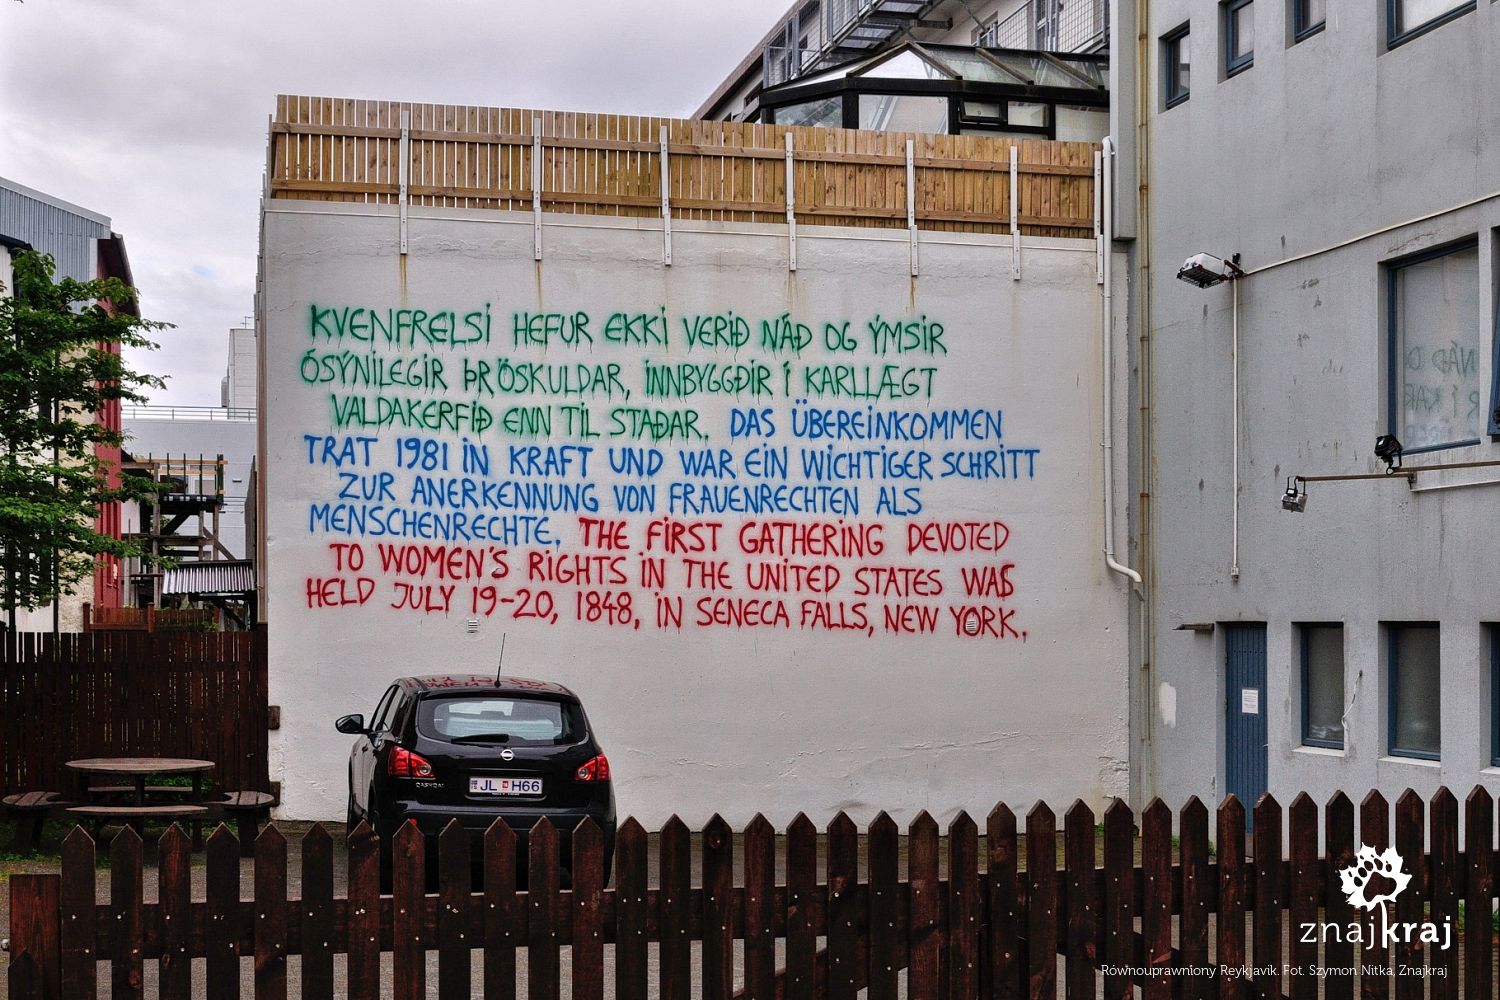 KVENFRELSI HEFUR EKKI VERIÐ NÁÐ OG ÝMSIR
ÓSÝNILEGIR ÞRÖSKULDAR, INNBYGGÐIR Í KARLLÆGT
VALDAKERFIÐ ENN TIL STAÐAR. DAS ÜBEREINKOMMEN
TRAT 1981 IN KRAFT UND WAR EIN WICHTIGER SCHRITT
ZUR ANERKENNUNG VON FRAUENRECHTEN ALS
MENSCHENRECHTE. THE FIRST GATHERING DEVOTED
TO WOMEN'S RIGHTS IN THE UNITED STATES WAS
HELD JULY 19-20, 1848, IN SENECA FALLS, NEW YORK.
QASHQAI
JL H66
znajkraj
Równouprawniony Reykjavik. Fot. Szymon Nitka, Znajkraj